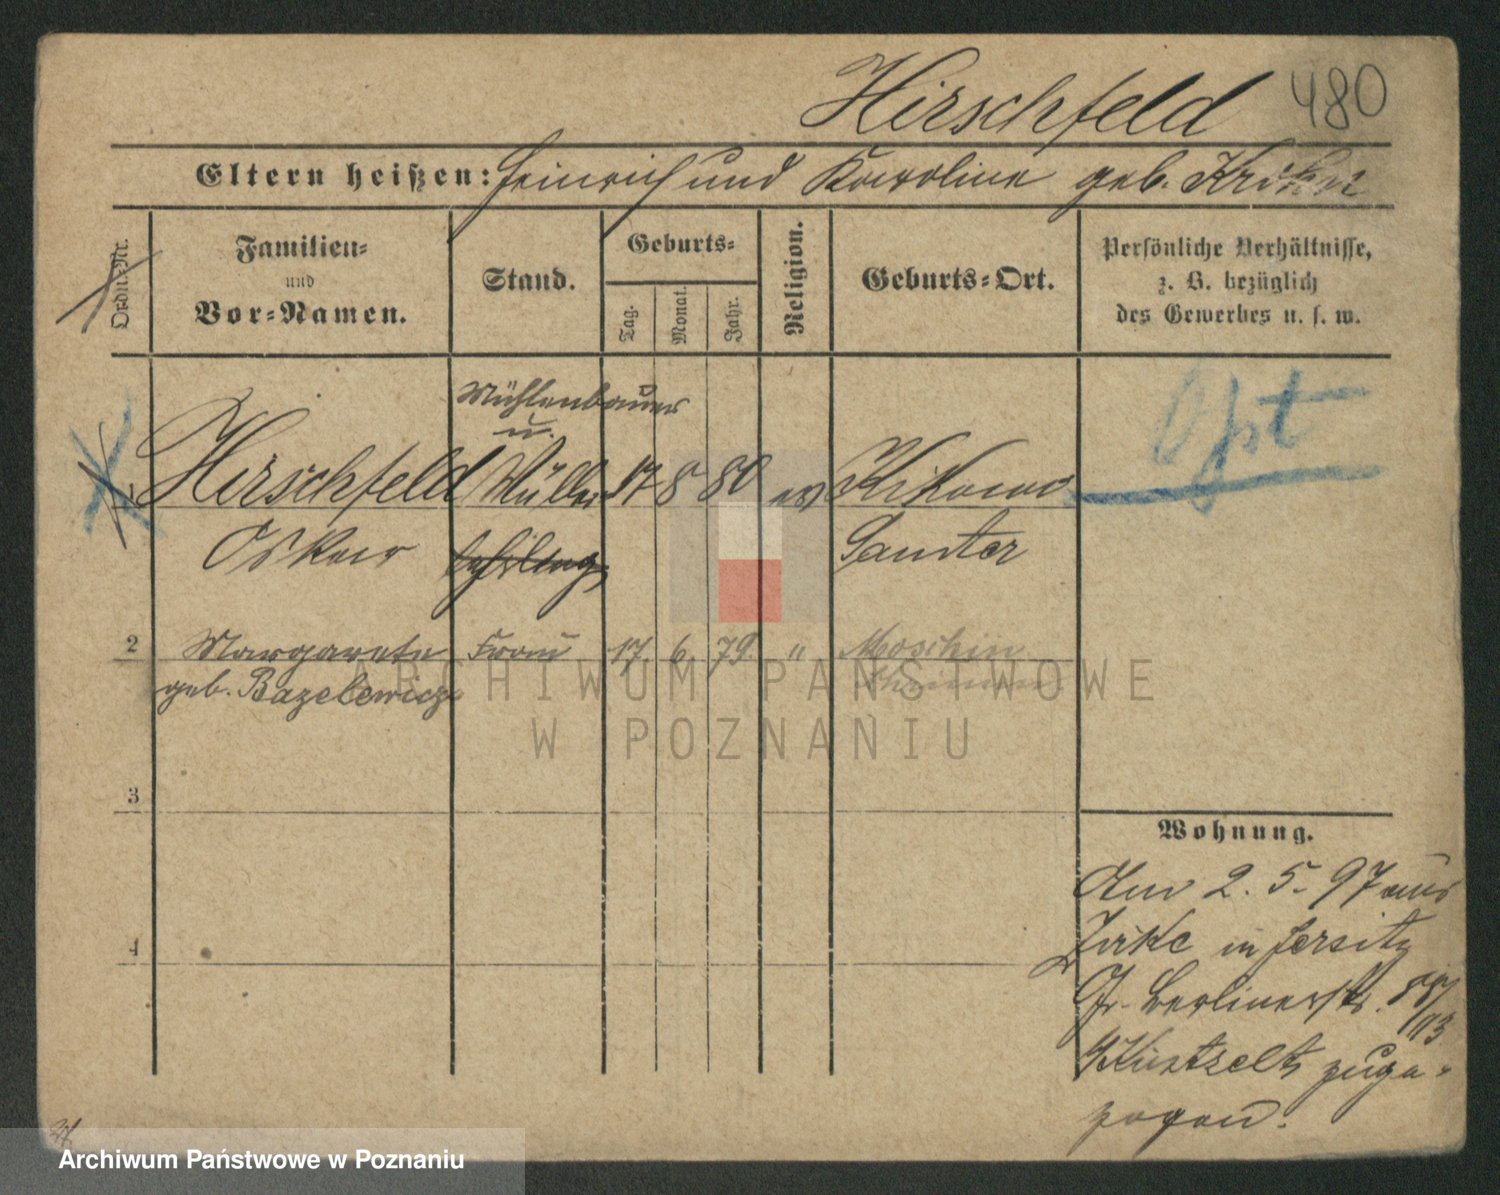 Hirschfeld 480
Eltern heißen: Heinrich und Karoline geb. Kröhn
Ordn.-Nr.
Familien-
und
Vor-Namen.
Stand.
Geburts-
Tag.
Monat.
Jahr.
Religion.
Geburts-Ort.
Persönliche Verhältnisse,
z. B. bezüglich
des Gewerbes u. s. w.
Mühlenbauer
u.
1 Hirschfeld Müller 17 8 80 ev
Oskar
Samter
2 Margarete Frau 17. 6. 79. " Moschin
geb. Bazelewicz Schrimm
3
4
Wohnung.
Am 2. 5. 97 aus
Zirke in Jersitz
Gr. Berlinerstr.
zuge-
zogen.
ARCHIWUM PAŃSTWOWE
W POZNANIU
Archiwum Państwowe w Poznaniu